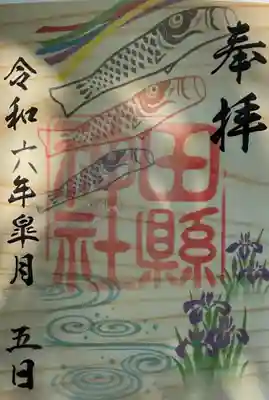 奉拝
田縣神社
令和六年皐月 五日